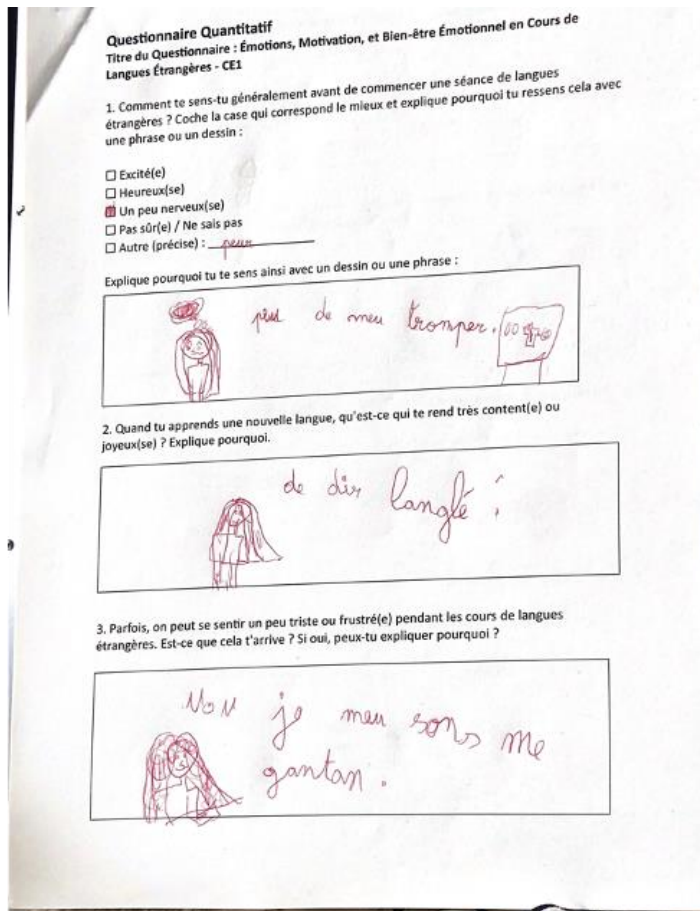 Questionnaire Quantitatif
Titre du Questionnaire : Émotions, Motivation, et Bien-être Émotionnel en Cours de
Langues Étrangères - CE1
1. Comment te sens-tu généralement avant de commencer une séance de langues
étrangères ? Coche la case qui correspond le mieux et explique pourquoi tu ressens cela avec
une phrase ou un dessin :
☐ Excité(e)
☐ Heureux(se)
☒ Un peu nerveux(se)
☐ Pas sûr(e) / Ne sais pas
☐ Autre (précise) : peur
Explique pourquoi tu te sens ainsi avec un dessin ou une phrase :
de meu tromper.
2. Quand tu apprends une nouvelle langue, qu'est-ce qui te rend très content(e) ou
joyeux(se) ? Explique pourquoi.
de dir langlé
3. Parfois, on peut se sentir un peu triste ou frustré(e) pendant les cours de langues
étrangères. Est-ce que cela t'arrive ? Si oui, peux-tu expliquer pourquoi ?
Non je meu sons me
gantan.